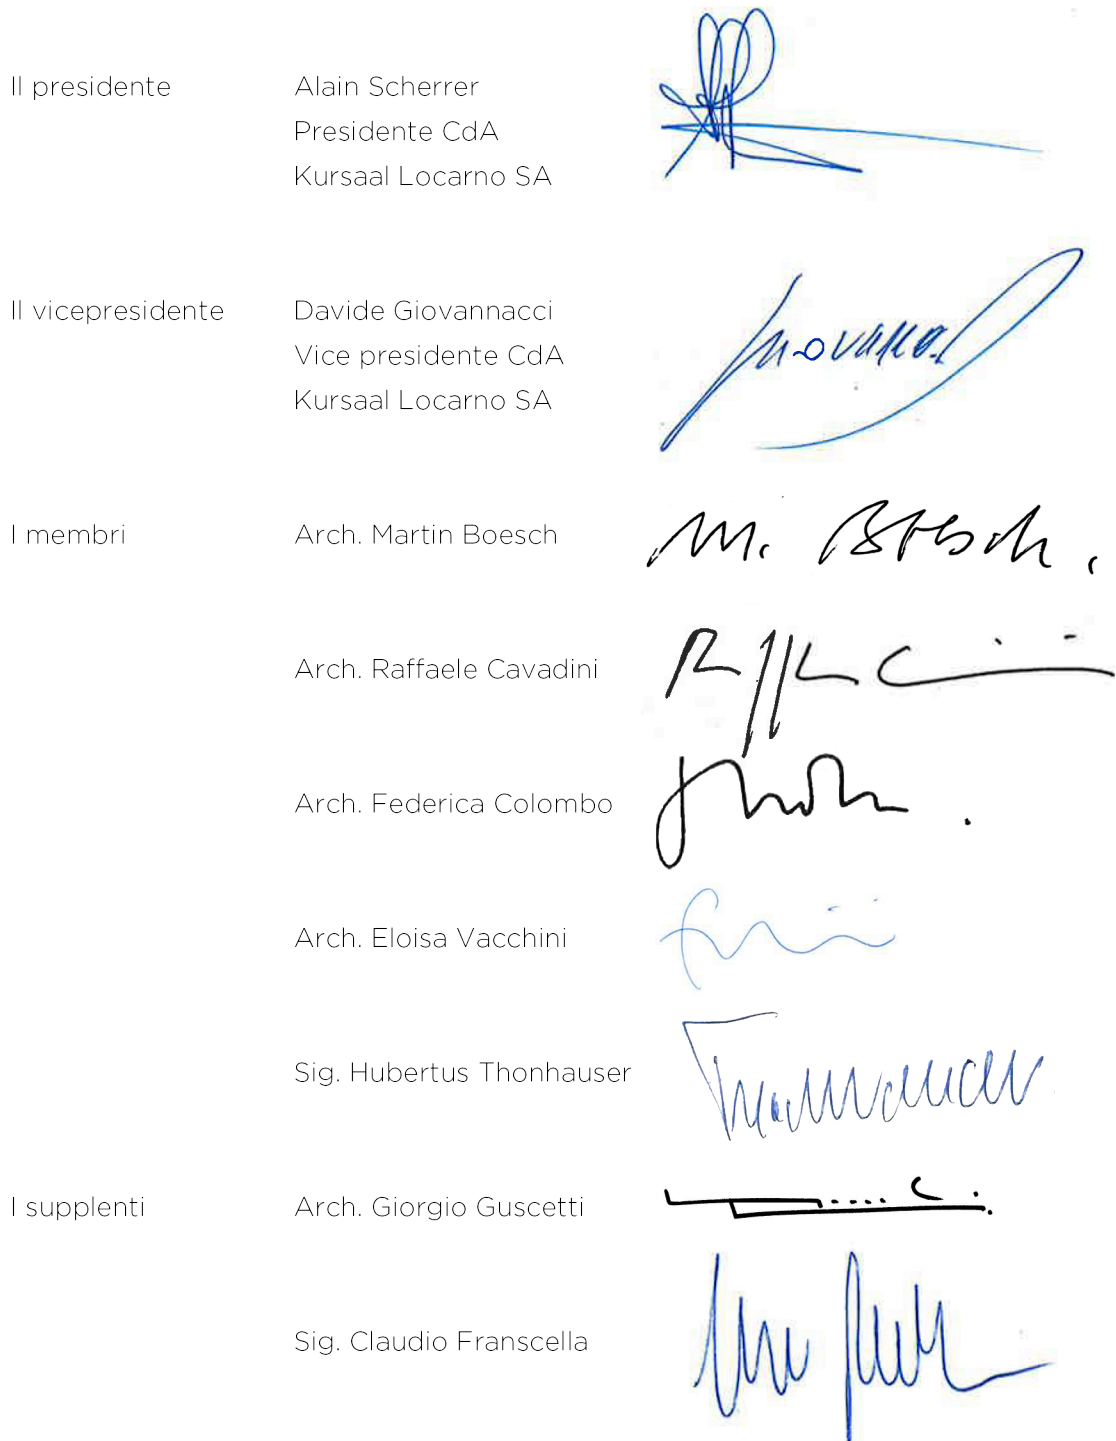 Il presidente Alain Scherrer
Presidente CdA
Kursaal Locarno SA
Il vicepresidente Davide Giovannacci
Vice presidente CdA
Kursaal Locarno SA
I membri Arch. Martin Boesch M. Boesch.
Arch. Raffaele Cavadini
Arch. Federica Colombo
Arch. Eloisa Vacchini
Sig. Hubertus Thonhauser
I supplenti Arch. Giorgio Guscetti
Sig. Claudio Franscella